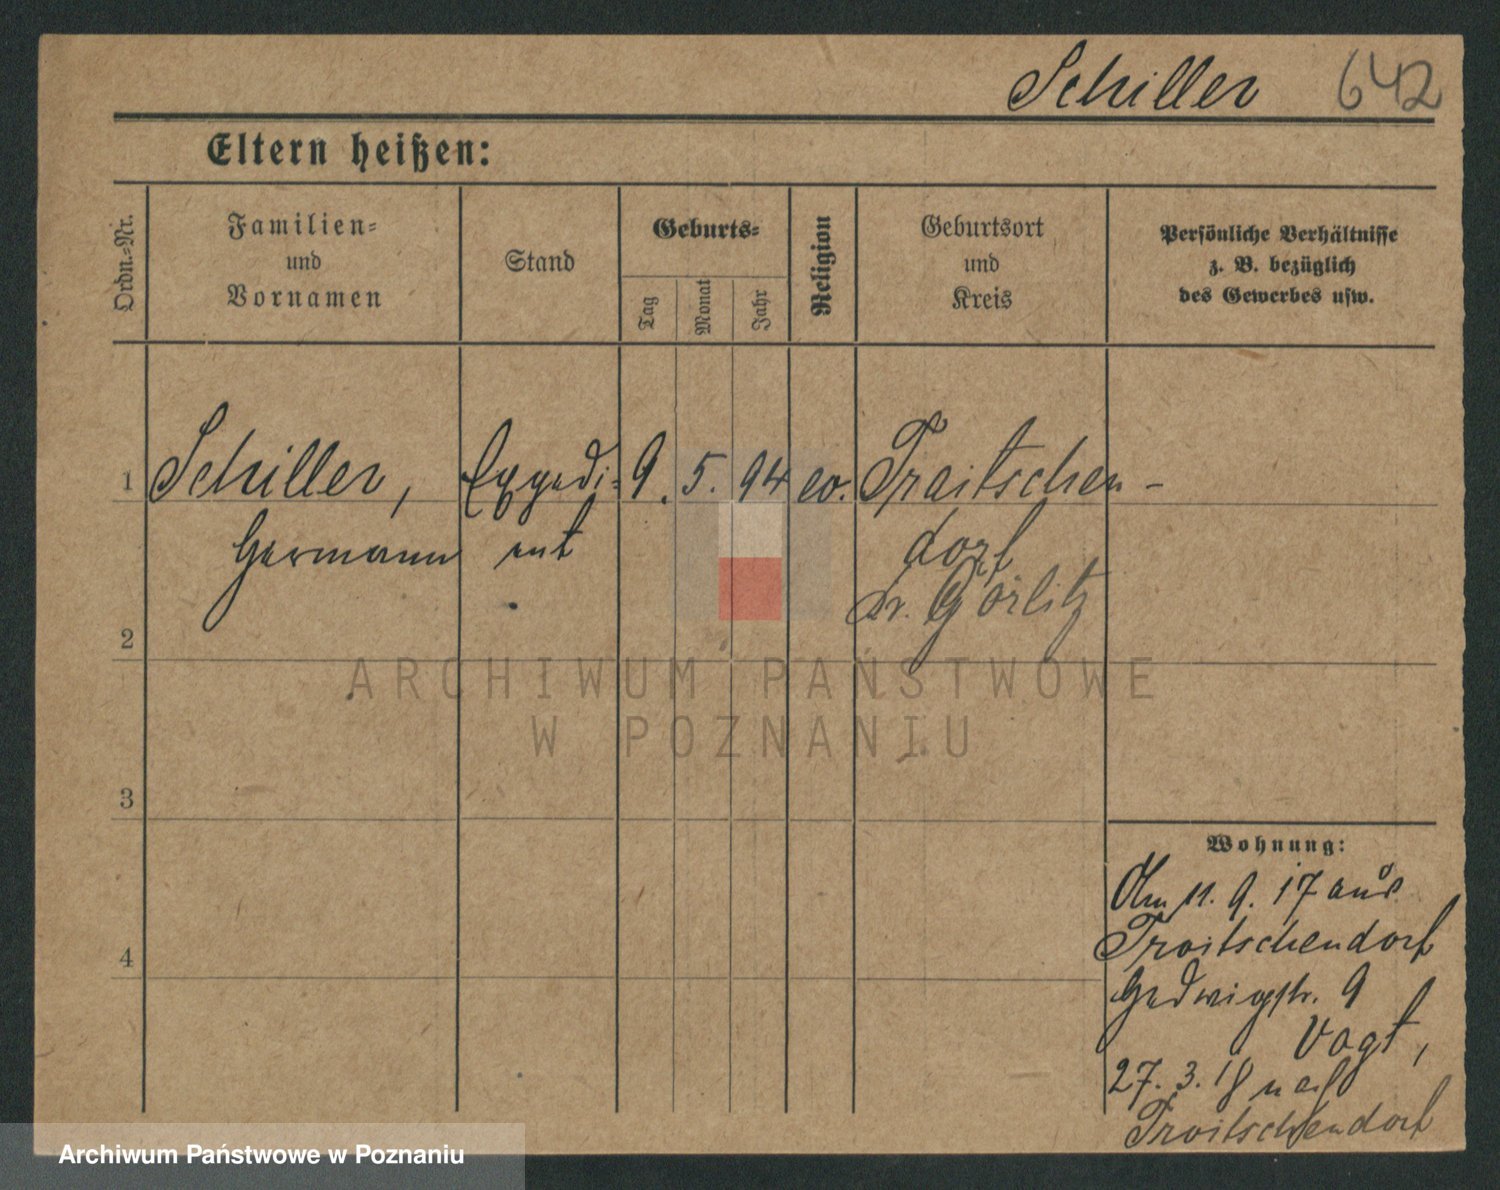 Schiller 642
Eltern heißen:
Ordn.-Nr.
Familien-
und
Vornamen
Stand
Geburts-
Tag
Monat
Jahr
Religion
Geburtsort
und
Kreis
Persönliche Verhältnisse
z. B. bezüglich
des Gewerbes usw.
1 Schiller, Expedi- 9. 5. 94 ev. Troitschen-
Hermann ent dorf
Kr. Görlitz
2
3
4
Wohnung:
Am 11. 9. 17 aus
Troitschendorf
Hedwigstr. 9
Vogt,
27. 3. 18 nach
Troitschendorf
ARCHIWUM PAŃSTWOWE
W POZNANIU
Archiwum Państwowe w Poznaniu